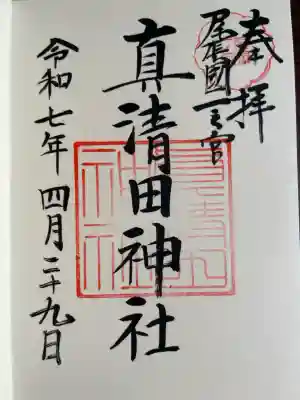 奉拝
尾張國一之宮
真清田神社
令和七年四月二十九日